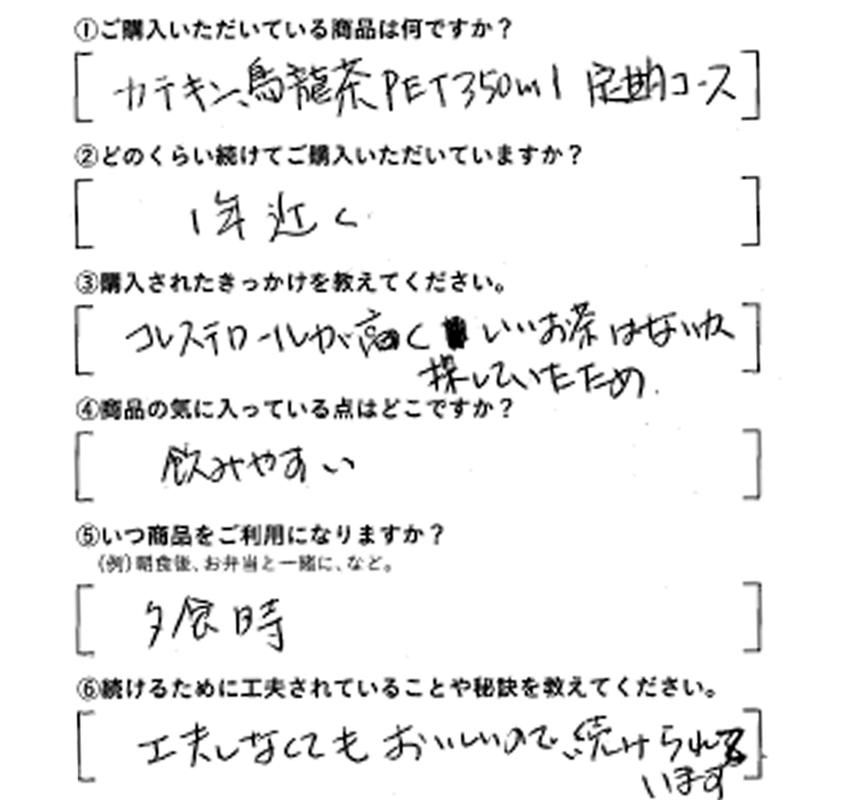 ①ご購入いただいている商品は何ですか？
カテキン烏龍茶PET350ml 定期コース
②どのくらい続けてご購入いただいていますか？
1年近く
③購入されたきっかけを教えてください。
コレステロールが高く いいお茶はないか
探していたため
④商品の気に入っている点はどこですか？
飲みやすい
⑤いつ商品をご利用になりますか？
（例）朝食後、お弁当と一緒に、など。
夕食時
⑥続けるために工夫されていることや秘訣を教えてください。
工夫しなくてもおいしいので、続けられて
います